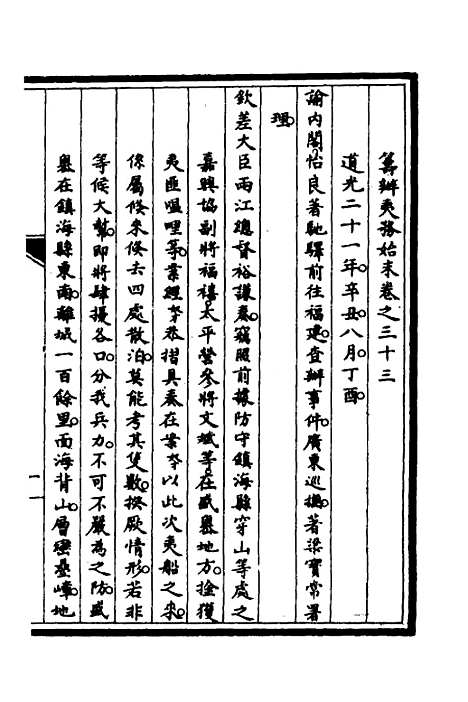 籌辦夷務始末卷之三十三
道光二十一年。辛丑。八月。丁酉。
諭內閣。怡良著馳驛前往福建。查辦事件。廣東巡撫。著梁寶常署
理。
欽差大臣兩江總督裕謙奏。竊照前據防守鎮海縣穿山等處之
嘉興協副將福禧。太平營參將文斌等。在盛嶴地方。捦獲
夷匪嗢哩等。業經奴才恭摺具奏在案。奴才以此次夷船之來。
係屬倏來倏去。四處散泊。莫能考其隻數。揆厥情形。若非
等候大幫。即將肆擾各口。分我兵力。不可不嚴為之防。盛
嶴在鎮海縣東南。離城一百餘里。面海背山。層巒疊嶂。地